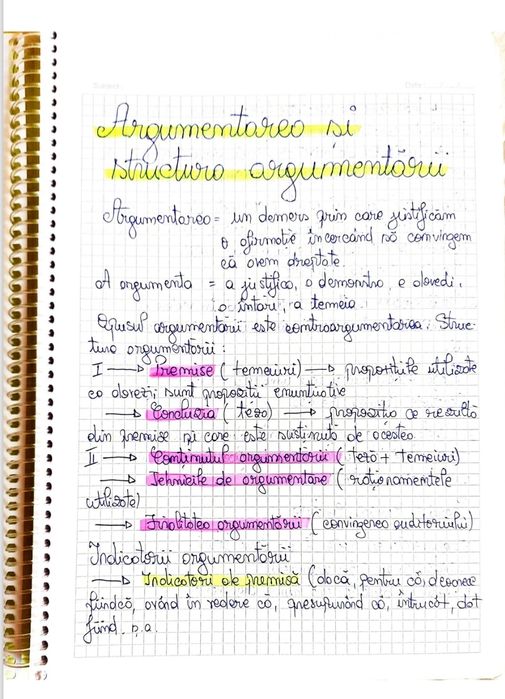 Argumentarea și
structura argumentării
Argumentarea = un demers prin care justificăm
o afirmație încercând să convingem
că avem dreptate.
A argumenta = a justifica, a demonstra, a dovedi,
a întări, a temeia.
Opusul argumentării este contraargumentarea. Struc-
tura argumentării:
I → Premise (temeiuri) → propozițiile utilizate
ca dovezi; sunt propoziții enunțiative
→ Concluzia (teza) → propoziția ce rezultă
din premise și care este susținută de acestea
II → Conținutul argumentării (teză + temeiuri)
→ Tehnicile de argumentare (raționamentele
utilizate)
→ Finalitatea argumentării (convingerea auditoriului)
Indicatorii argumentării
→ Indicatori de premisă (dacă, pentru că, deoarece
fiindcă, având în vedere că, presupunând că, întrucât, dat
fiind. ș.a.